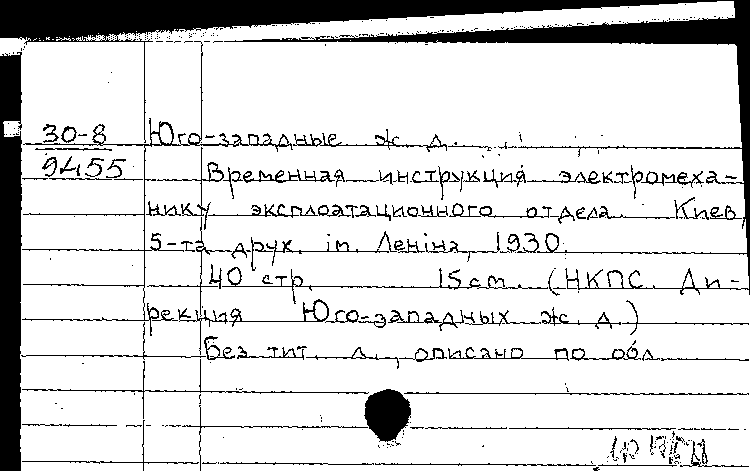 30-8 Юго-западные ж. д.
9455 Временная инструкция электромеха-
нику эксплоатационного отдела. Киев,
5-та друк. ім. Леніна, 1930.
40 стр. 15 см. (НКПС. Ди-
рекция Юго-западных ж. д.)
Без тит. л., описано по обл.